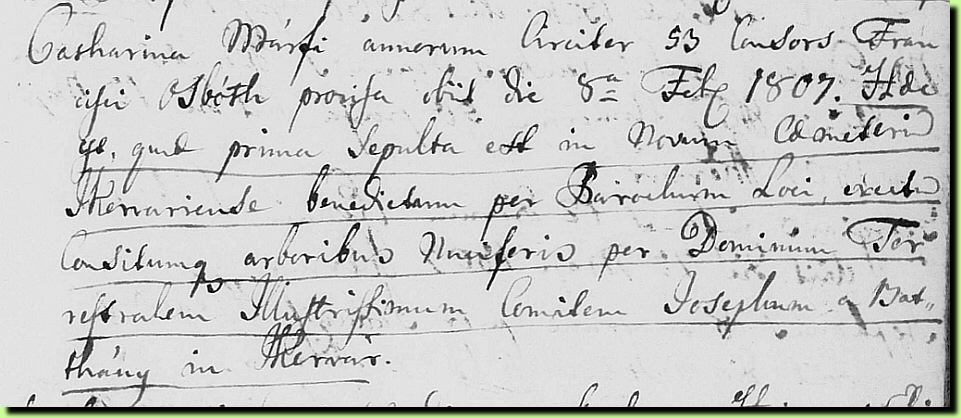 Catharina Márfi annorum Circiter 53 Consors Fran
cisci Osbóth provisa obiit die 8a Feb 1807. Hæc
est, quæ prima Sepulta est in Novum Cœmeteriu
Ikervariense benedictum per Parochum Loci, erectu
Consitumq arboribus Nuciferis per Dominum Ter
restralem Illustrissimum Comitem Josephum a Bat„
thány in Ikervár.